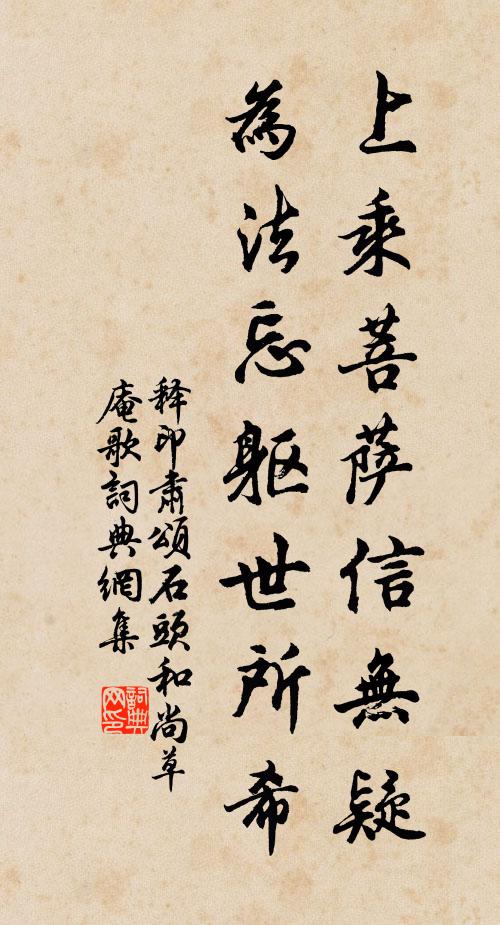 上乘菩薩信無疑
為法忘軀世所希
释印肅頌石頭和尚草
庵歌詞典網集
詞典网印